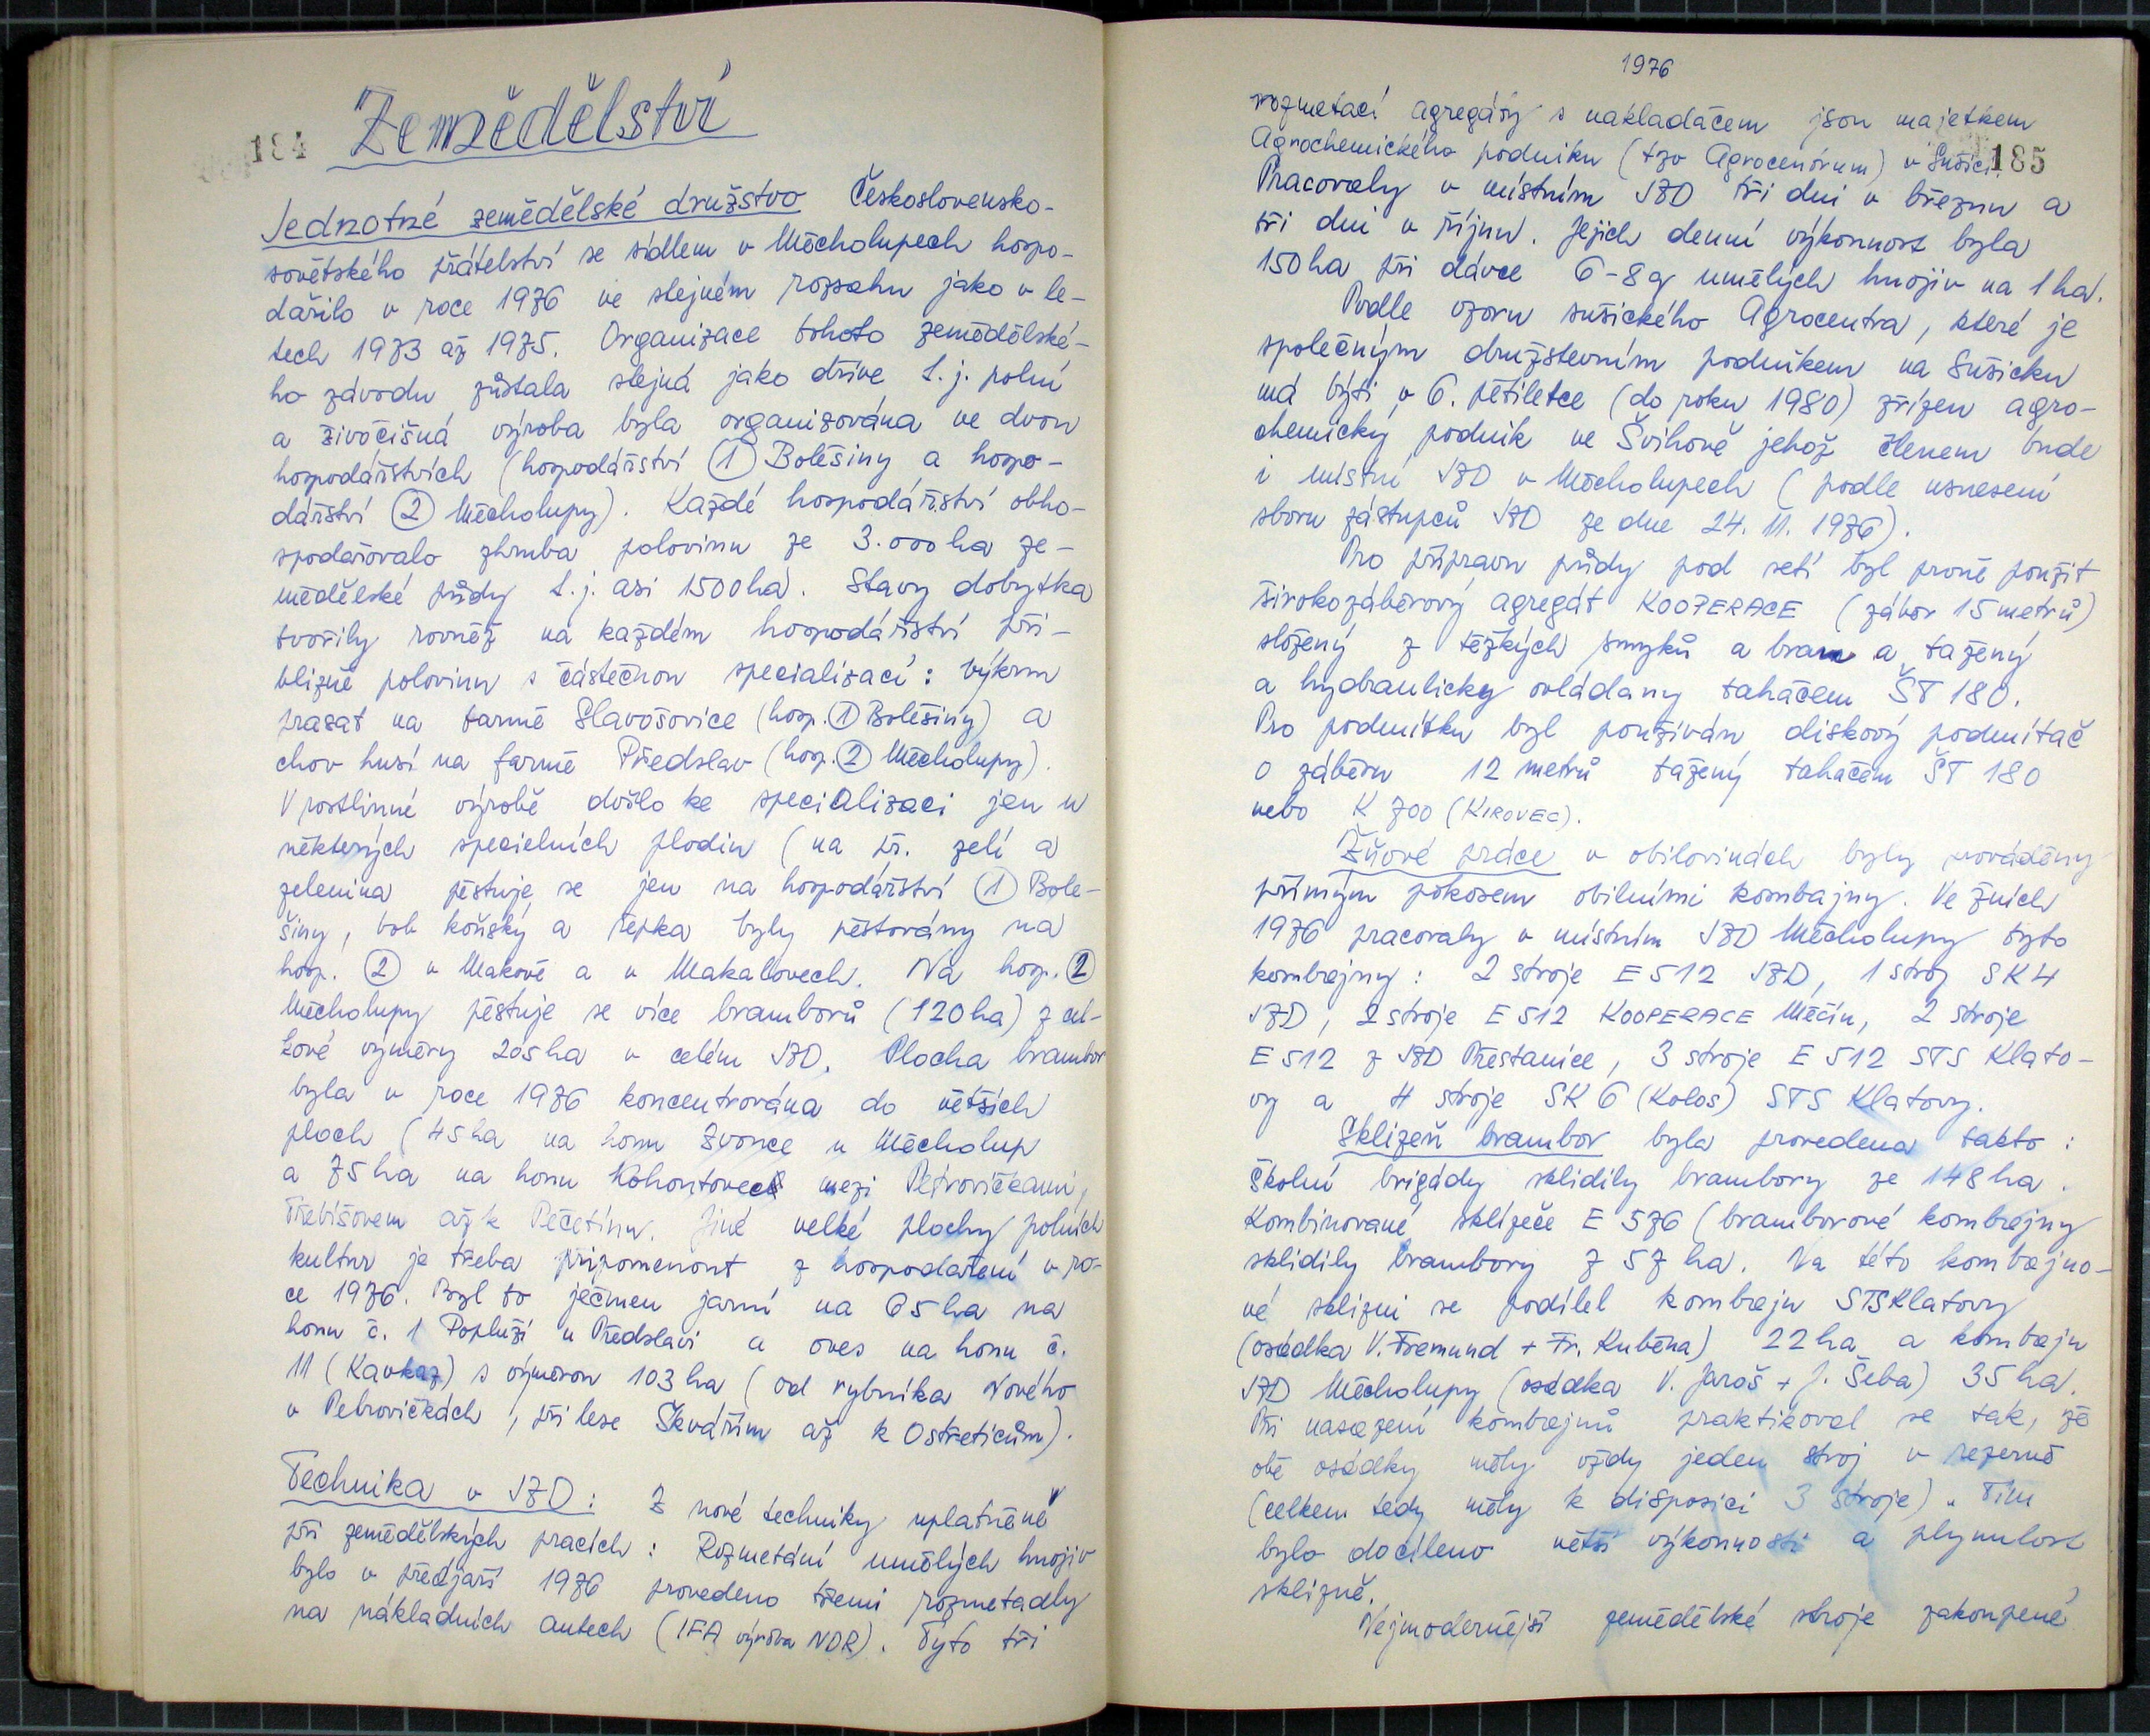 184
Zemědělství
Jednotné zemědělské družstvo Československo-
sovětského přátelství se sídlem v Měcholupech hospo-
dařilo v roce 1976 ve stejném rozsahu jako v le-
tech 1973 až 1975. Organizace tohoto zemědělské-
ho závodu zůstala stejná jako dříve t.j. polní
a živočišná výroba byla organizována ve dvou
hospodářstvích (hospodářství ① Bolešiny a hospo-
dářství ② Měcholupy). Každé hospodářství obho-
spodařovalo zhruba polovinu ze 3.000 ha ze-
mědělské půdy t.j. asi 1500 ha. Stavy dobytka
tvořily rovněž na každém hospodářství při-
bližně polovinu s částečnou specializací: výkrm
prasat na farmě Slavošovice (hosp. ① Bolešiny) a
chov husí na farmě Předslav (hosp. ② Měcholupy).
V rostlinné výrobě došlo ke specializaci jen u
některých specielních plodin (na př. zelí a
zelenina pěstuje se jen na hospodářství ① Bole-
šiny, bob koňský a řepka byly pěstovány na
hosp. ② v Makově a v Makalovech. Na hosp. ②
Měcholupy pěstuje se více bramborů (120 ha) z cel-
kové výměry 205 ha v celém JZD. Plocha brambor
byla v roce 1976 koncentrována do větších
ploch (45 ha na honu Zvonce u Měcholup
a 75 ha na honu Kohoutovec mezi Petrovičkami,
Třebíšovem až k Pečetínu. Jiné velké plochy polních
kultur je třeba připomenout z hospodaření v ro-
ce 1976. Byl to ječmen jarní na 65 ha na
honu č. 1 Popluží u Předslavi a oves na honu č.
11 (Kavkaz) s výměrou 103 ha (od rybníka Nového
v Petrovičkách, při lese Skvářím až k Ostřeticům).
Technika v JZD: Z nové techniky uplatněné
při zemědělských pracích: Rozmetání umělých hnojiv
bylo v předjaří 1976 provedeno třemi rozmetadly
na nákladních autech (IFA výroba NDR). Tyto tři
1976
185
rozmetací agregáty s nakladačem jsou majetkem
Agrochemického podniku (tzv Agrocentrum) v Sušici.
Pracovaly v místním JZD tři dni v březnu a
tři dni v říjnu. Jejich denní výkonnost byla
150 ha při dávce 6-8 q umělých hnojiv na 1 ha.
Podle vzoru sušického Agrocentra, které je
společným družstevním podnikem na Sušicku
má býti v 6. pětiletce (do roku 1980) zřízen agro-
chemický podnik ve Švihově jehož členem bude
i místní JZD v Měcholupech (podle usnesení
sboru zástupců JZD ze dne 24. 11. 1976).
Pro přípravu půdy pod setí byl prvně použit
širokozáběrový agregát KOOPERACE (zábor 15 metrů)
složený z těžkých smyků a bran a tažený
a hydraulicky ovládaný tahačem ŠT 180.
Pro podmítku byl používán diskový podmítač
o záběru 12 metrů tažený tahačem ŠT 180
nebo K 700 (KIROVEC).
Žňové práce v obilovinách byly prováděny
přímým pokosem obilními kombajny. Ve žních
1976 pracovaly v místním JZD Měcholupy tyto
kombajny: 2 stroje E 512 JZD, 1 stroj SK 4
JZD, 2 stroje E 512 KOOPERACE Měčín, 2 stroje
E 512 z JZD Přestanice, 3 stroje E 512 STS Klato-
vy a 4 stroje SK 6 (Kolos) STS Klatovy.
Sklizeň brambor byla provedena takto:
školní brigády sklidily brambory ze 148 ha.
Kombinované sklízeče E 576 (bramborové kombajny
sklidily brambory z 57 ha. Na této kombajno-
vé sklizni se podílel kombajn STS Klatovy
(osádka V. Tremund + Fr. Kuběna) 22 ha a kombajn
JZD Měcholupy (osádka V. Jaroš + J. Šeba) 35 ha.
Při nasazení kombajnů praktikoval se tak, že
obě osádky měly vždy jeden stroj v rezervě
(celkem tedy měly k disposici 3 stroje). Tím
bylo docíleno větší výkonnosti a plynulost
sklizně.
Nejmodernější zemědělské stroje zakoupené